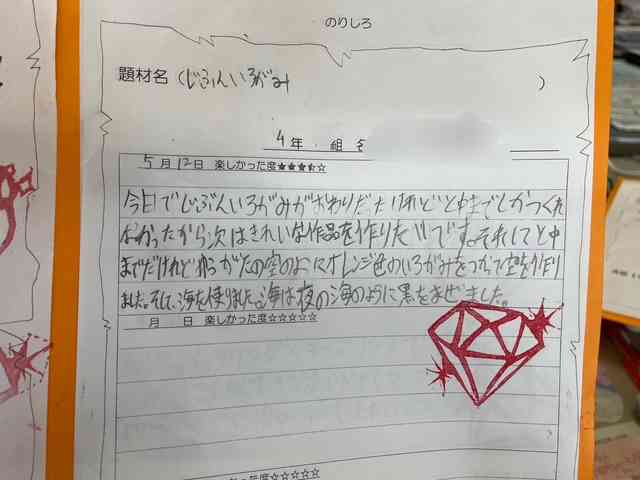 のりしろ
題材名（じぶんいろがみ）
4年 組
5月12日 楽しかった度★★★★☆
今日でじぶんいろがみがおわりだたけれどと中までしかつくれ
なかったから次はきれいな作品を作りたいです。それしてと中
までだけれどゆうがたの空のようにオレンジ色のいろがみをつかって空を作り
ました。そして、海を使りました。海は夜の海のように黒をまぜました。
月 日 楽しかった度☆☆☆☆☆
楽しかった度☆☆☆☆☆